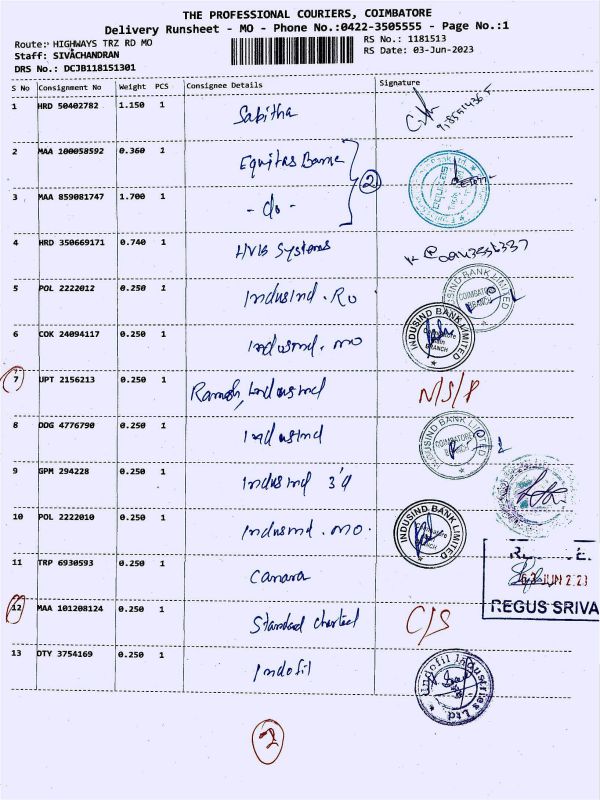 THE PROFESSIONAL COURIERS, COIMBATORE
Delivery Runsheet - MO - Phone No.:0422-3505555 - Page No.:1
Route: HIGHWAYS TRZ RD MO
RS No.: 1181513
Staff: SIVACHANDRAN
RS Date: 03-Jun-2023
DRS No.: DCJB118151301
S No Consignment No Weight PCS Consignee Details Signature
1 HRD 50402782 1.150 1 Sabitha
2 MAA 100058592 0.360 1 Equitas Bank
2
3 MAA 859081747 1.700 1 - do -
4 HRD 350669171 0.740 1 HVB Systems
5 POL 2222012 0.250 1 Indusind . RO
INDUSIND BANK LIMITED COIMBATORE BRANCH
6 COK 24094117 0.250 1 Indusind . MO
INDUSIND BANK LIMITED BRANCH
7 UPT 2156213 0.250 1 Ramesh, Indusind N/S/P
8 DDG 4776790 0.250 1 Indusind
INDUSIND BANK LIMITED COIMBATORE
9 GPM 294228 0.250 1 Indusind 3'd
10 POL 2222010 0.250 1 Indusind . MO.
INDUSIND BANK LIMITED BRANCH
11 TRP 6930593 0.250 1 Canara
JUN 2023
REGUS SRIVA
12 MAA 101208124 0.250 1 Standard charted C/S
13 DTY 3754169 0.250 1 Indofil
Indofil Industries Ltd
2